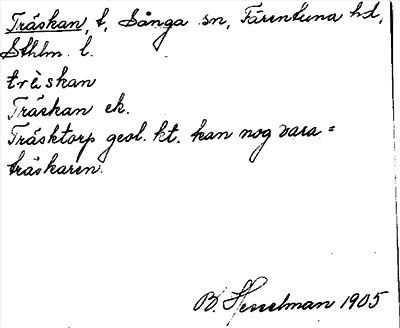 Träskan, t, Sånga sn, Färentuna hd,
Sthlm. l.
träskan
Träskan ek.
Träsktorp geol. kt. kan nog vara =
träskaren.
B. Hesselman 1905